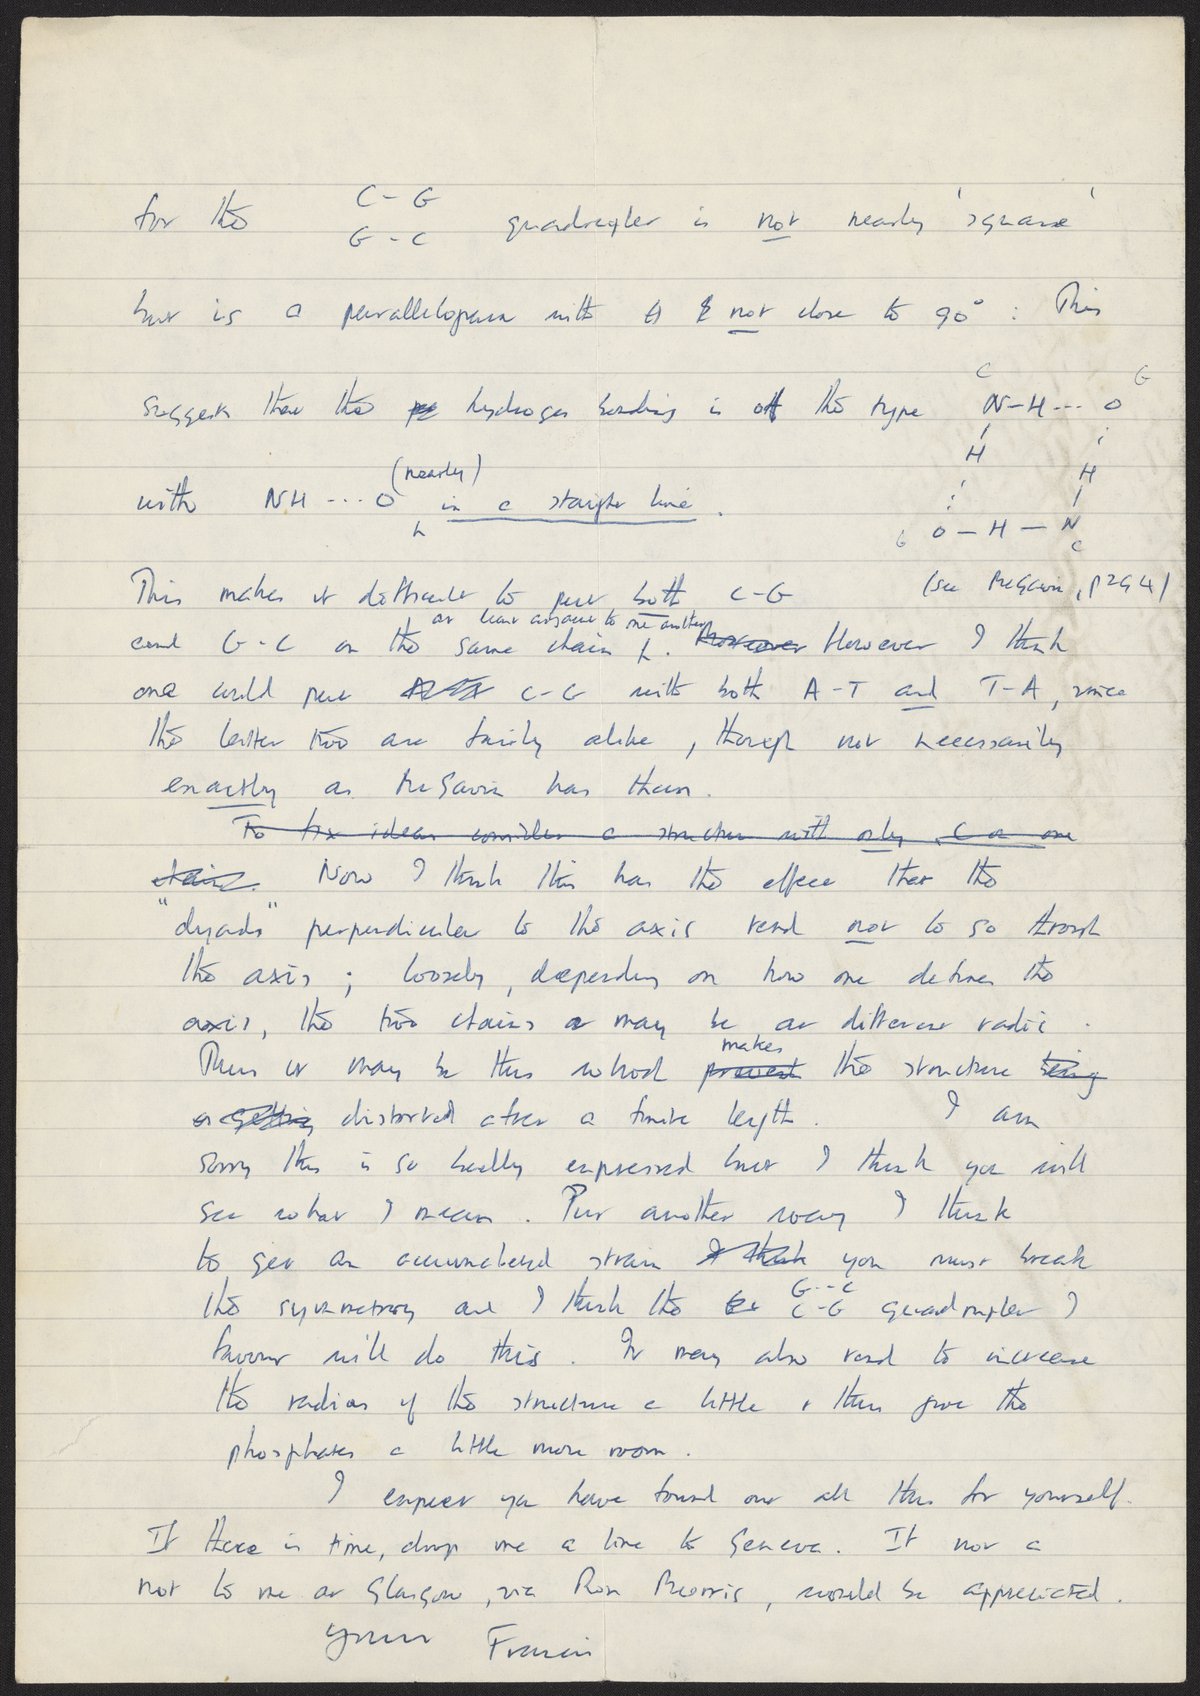 C - G
for the quadruplet is not nearly 'square'
G - C
but is a parallelogram with θ not close to 90° : This
suggests that the hydrogen bonding is of the type
C G
N-H --- O
H H
O - H - N
G C
with NH --- O (nearly) in a straight line.
This makes it difficult to put both C-G (see McGavin, p294)
at least adjacent to one another
and G-C on the same chain. Moreover However I think
one could put C-G with both A-T and T-A, since
the latter two are fairly alike, though not necessarily
exactly as McGavin has them.
To fix ideas consider a structure with only C on one
chain. Now I think this has the effect that the
"dyads" perpendicular to the axis tend not to go through
the axis; loosely, depending on how one defines the
axis, the two chains may be at different radii.
makes
Thus it may be this which prevents the structure being
or getting distorted after a finite length. I am
sorry this is so badly expressed but I think you will
see what I mean. Put another way I think
to get an accumulated strain I think you must break
G--C
the symmetry and I think the C-G quadruplet I
favour will do this. It may also tend to increase
the radius of the structure a little & thus give the
phosphates a little more room.
I expect you have found out all this for yourself.
If there is time, drop me a line to Geneva. If not a
not to me at Glasgow, via Ron Morris, would be appreciated.
Yours Francis